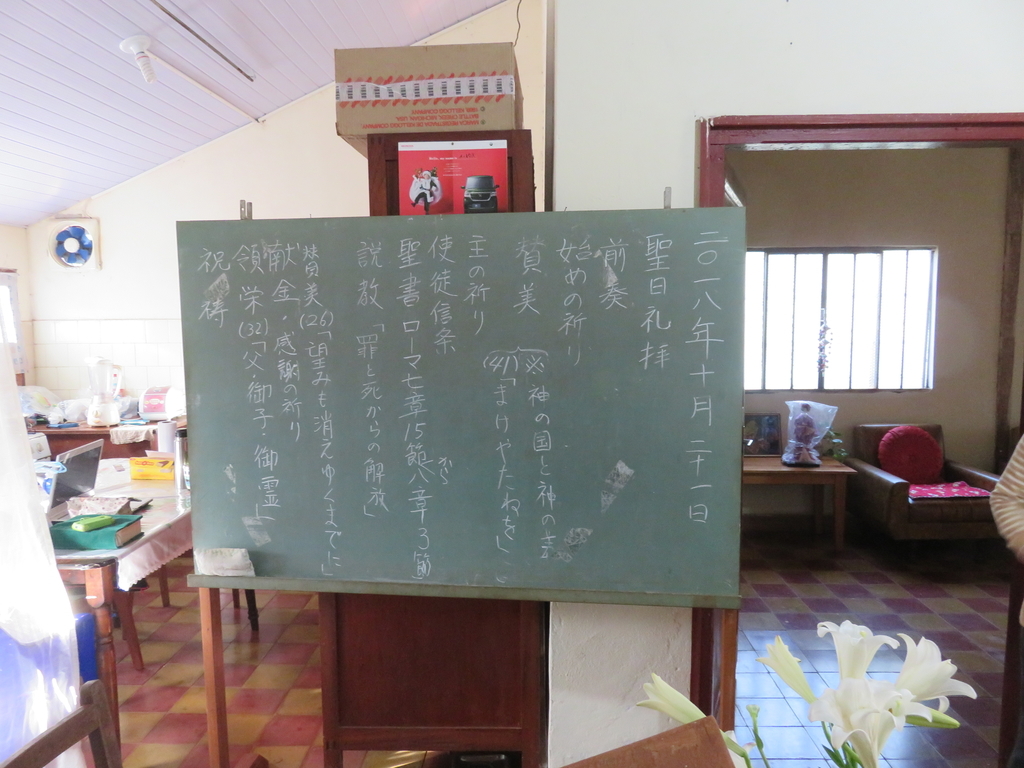 二〇一八年十月二十一日
聖日礼拝
前奏
始めの祈り
賛美 ※神の国と神の義
(41)「まけやたねを」
主の祈り
使徒信条
聖書 ローマ七章15節から八章3節
説教「罪と死からの解放」
賛美(26)「望みも消えゆくまでに」
献金・感謝の祈り
頌栄(32)「父御子御霊」
祝祷
BATTLE CREEK, MICHIGAN, USA.
MARCA REGISTRADA DE KELLOGG COMPANY